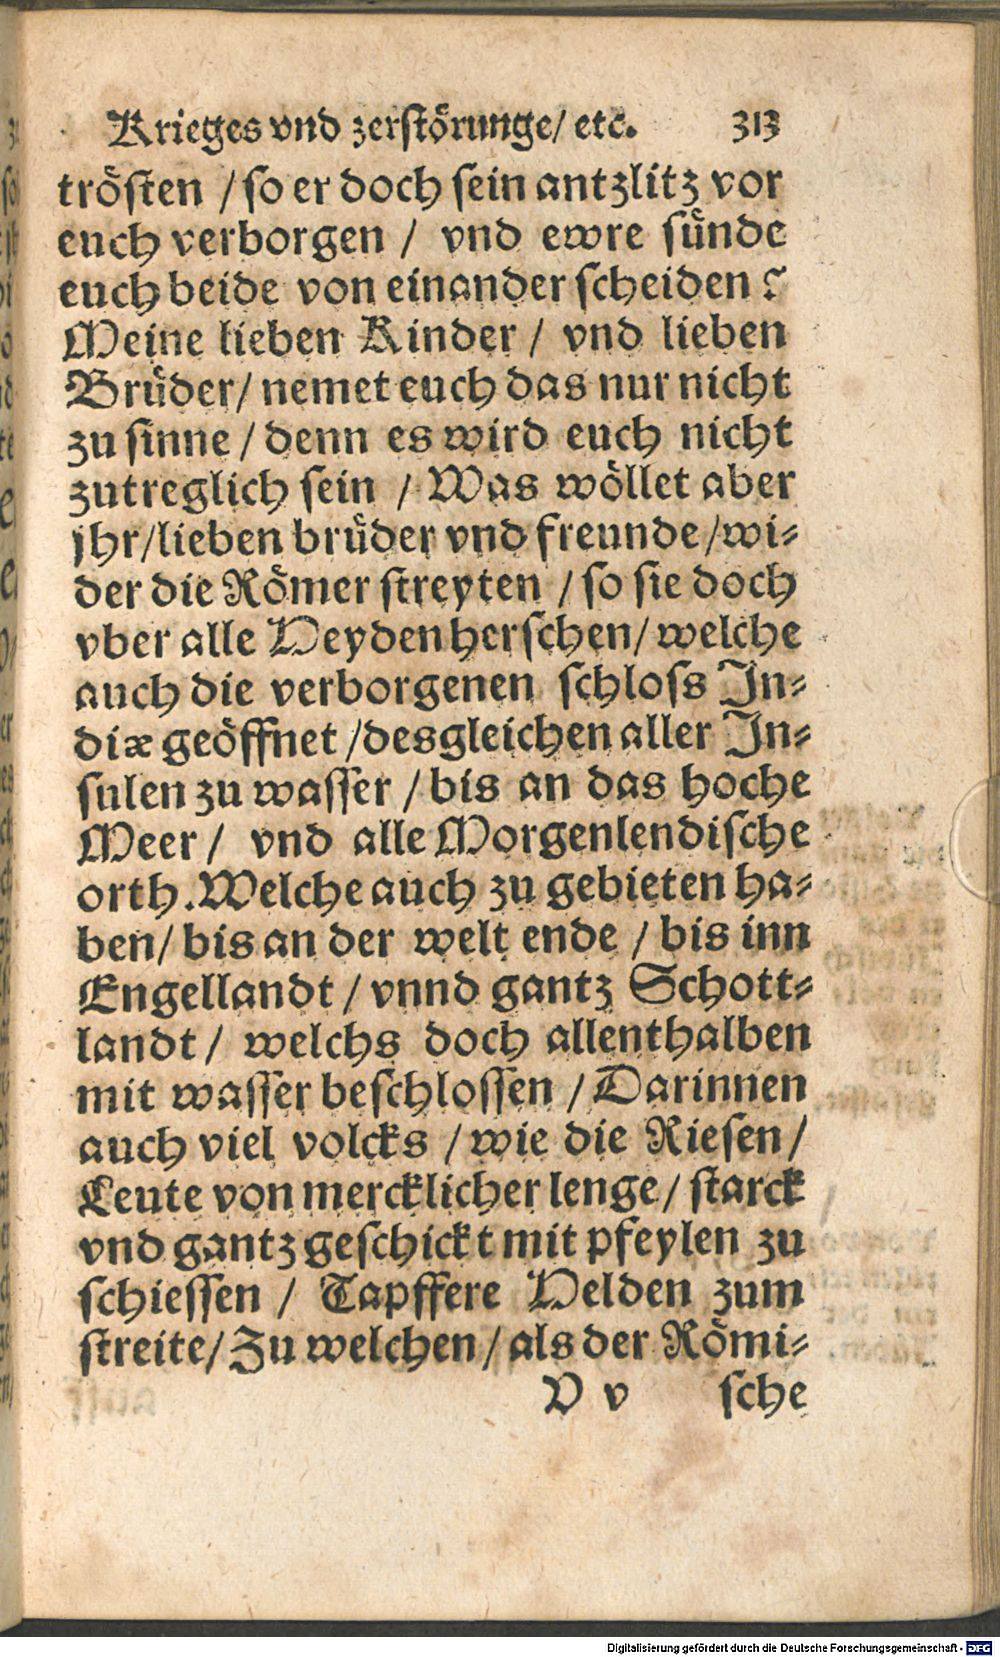 Krieges vnd zerstörunge/ etc. 313
trösten / so er doch sein antzlitz vor
euch verborgen / vnd ewre sünde
euch beide von einander scheiden?
Meine lieben Kinder / vnd lieben
Brüder/ nemet euch das nur nicht
zu sinne / denn es wird euch nicht
zutreglich sein / Was wöllet aber
jhr/lieben brüder vnd freunde/wi-
der die Römer streyten / so sie doch
vber alle Heyden herschen/ welche
auch die verborgenen schloss In-
diæ geöffnet /desgleichen aller In-
sulen zu wasser / bis an das hoche
Meer / vnd alle Morgenlendische
orth. Welche auch zu gebieten ha-
ben/ bis an der welt ende / bis inn
Engellandt / vnnd gantz Schott-
landt / welchs doch allenthalben
mit wasser beschlossen / Darinnen
auch viel volcks / wie die Riesen /
Leute von mercklicher lenge/ starck
vnd gantz geschickt mit pfeylen zu
schiessen / Tapffere Helden zum
streite/ Zu welchen / als der Römi-
V v sche
Digitalisierung gefördert durch die Deutsche Forschungsgemeinschaft - DFG